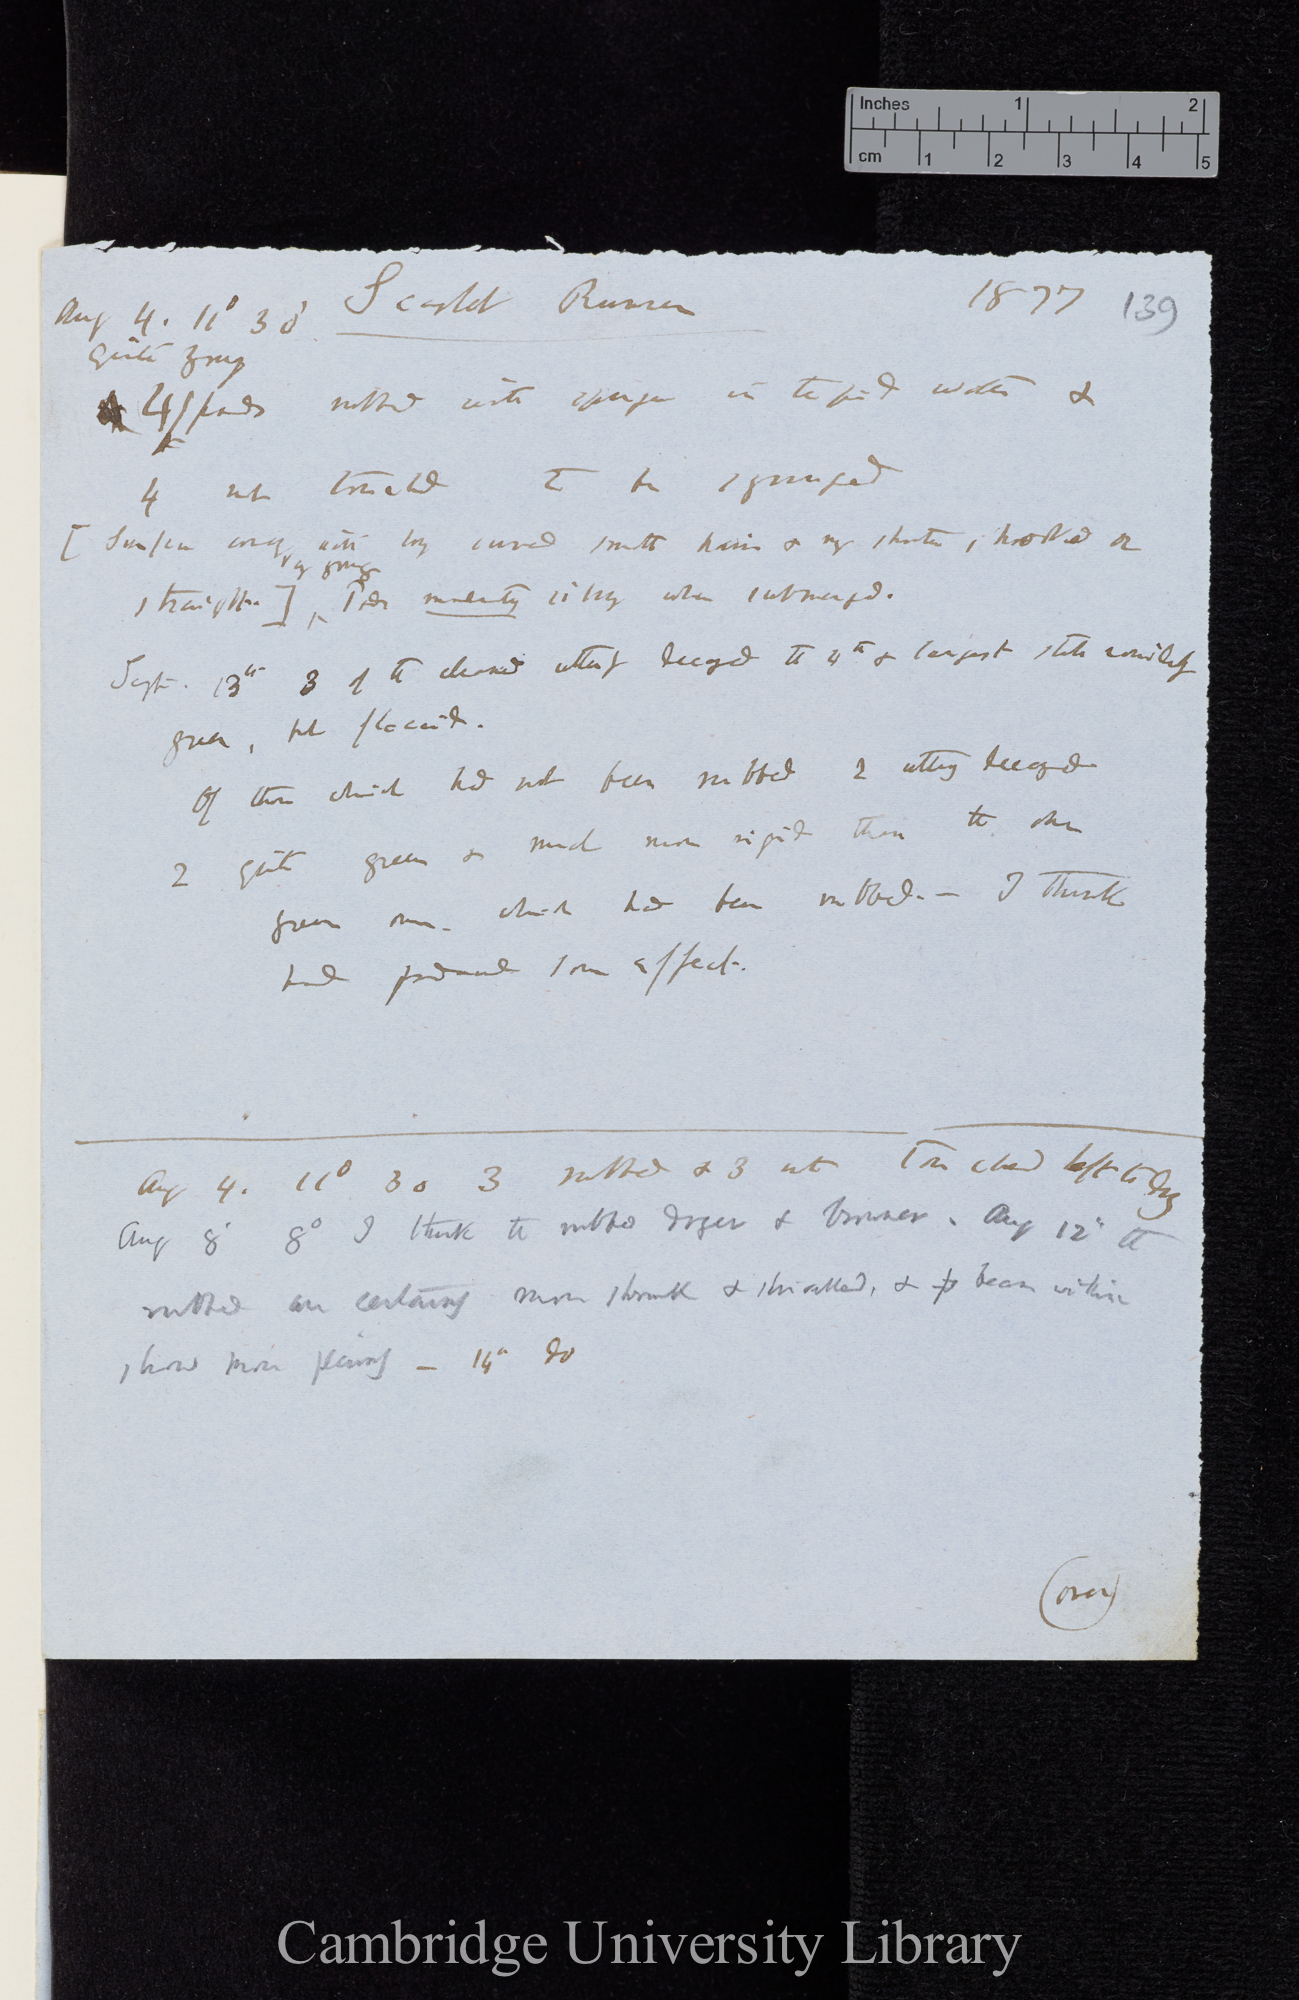 Inches 1 2
cm 1 2 3 4 5
Aug 4. 11° 30' Scarlet Runner 1877 139
quite young
4 pods rubbed with sponge in tepid water &
4 not touched to be sponged
[ Surface covered with long curved smooth hairs & very short, hooked or
very young
straight. ] Pods moderately silvery when submerged.
Sept. 13th 3 of the cleaned utterly decayed the 4th & largest still
green, but flaccid.
Of those which had not been rubbed 2 utterly decayed
2 quite green & much more rigid than the one
green one. which had been rubbed. — I think
had produced some effect.
Aug 4. 11° 30 3 rubbed & 3 not touched left to dry
Aug 8' 8° I think the rubbed dryer & browner. Aug 12" the
rubbed are certainly more shrunk & shrivelled, & beans within
show more plainly — 14" do
(over)
Cambridge University Library